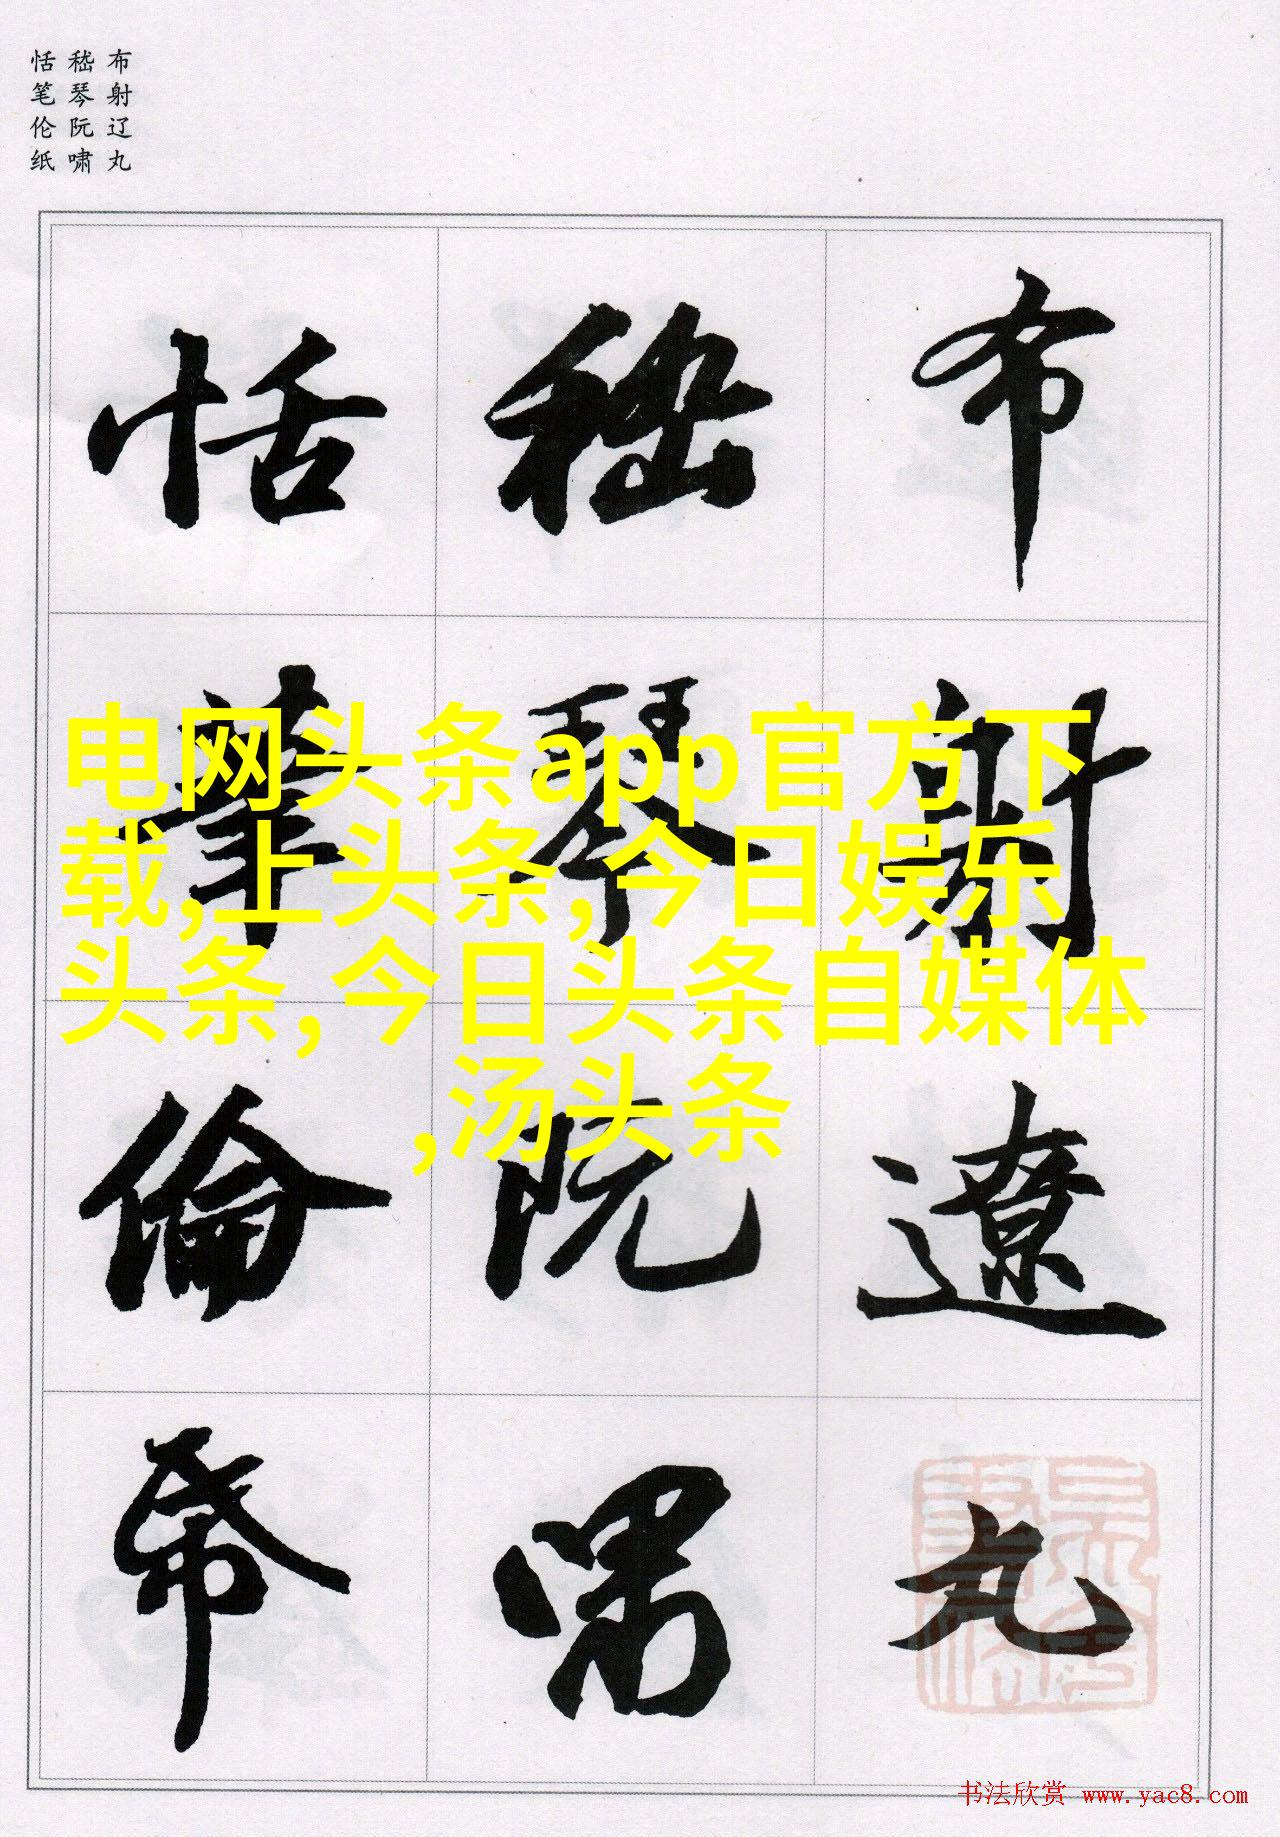 布射辽丸
嵇琴阮啸
恬笔伦纸
布射遼丸
嵇琴阮嘯
恬筆倫帋
电网头条app官方下
载,上头条,今日娱乐
头条,今日头条自媒体
,汤头条
书法欣赏 www.yac8.com